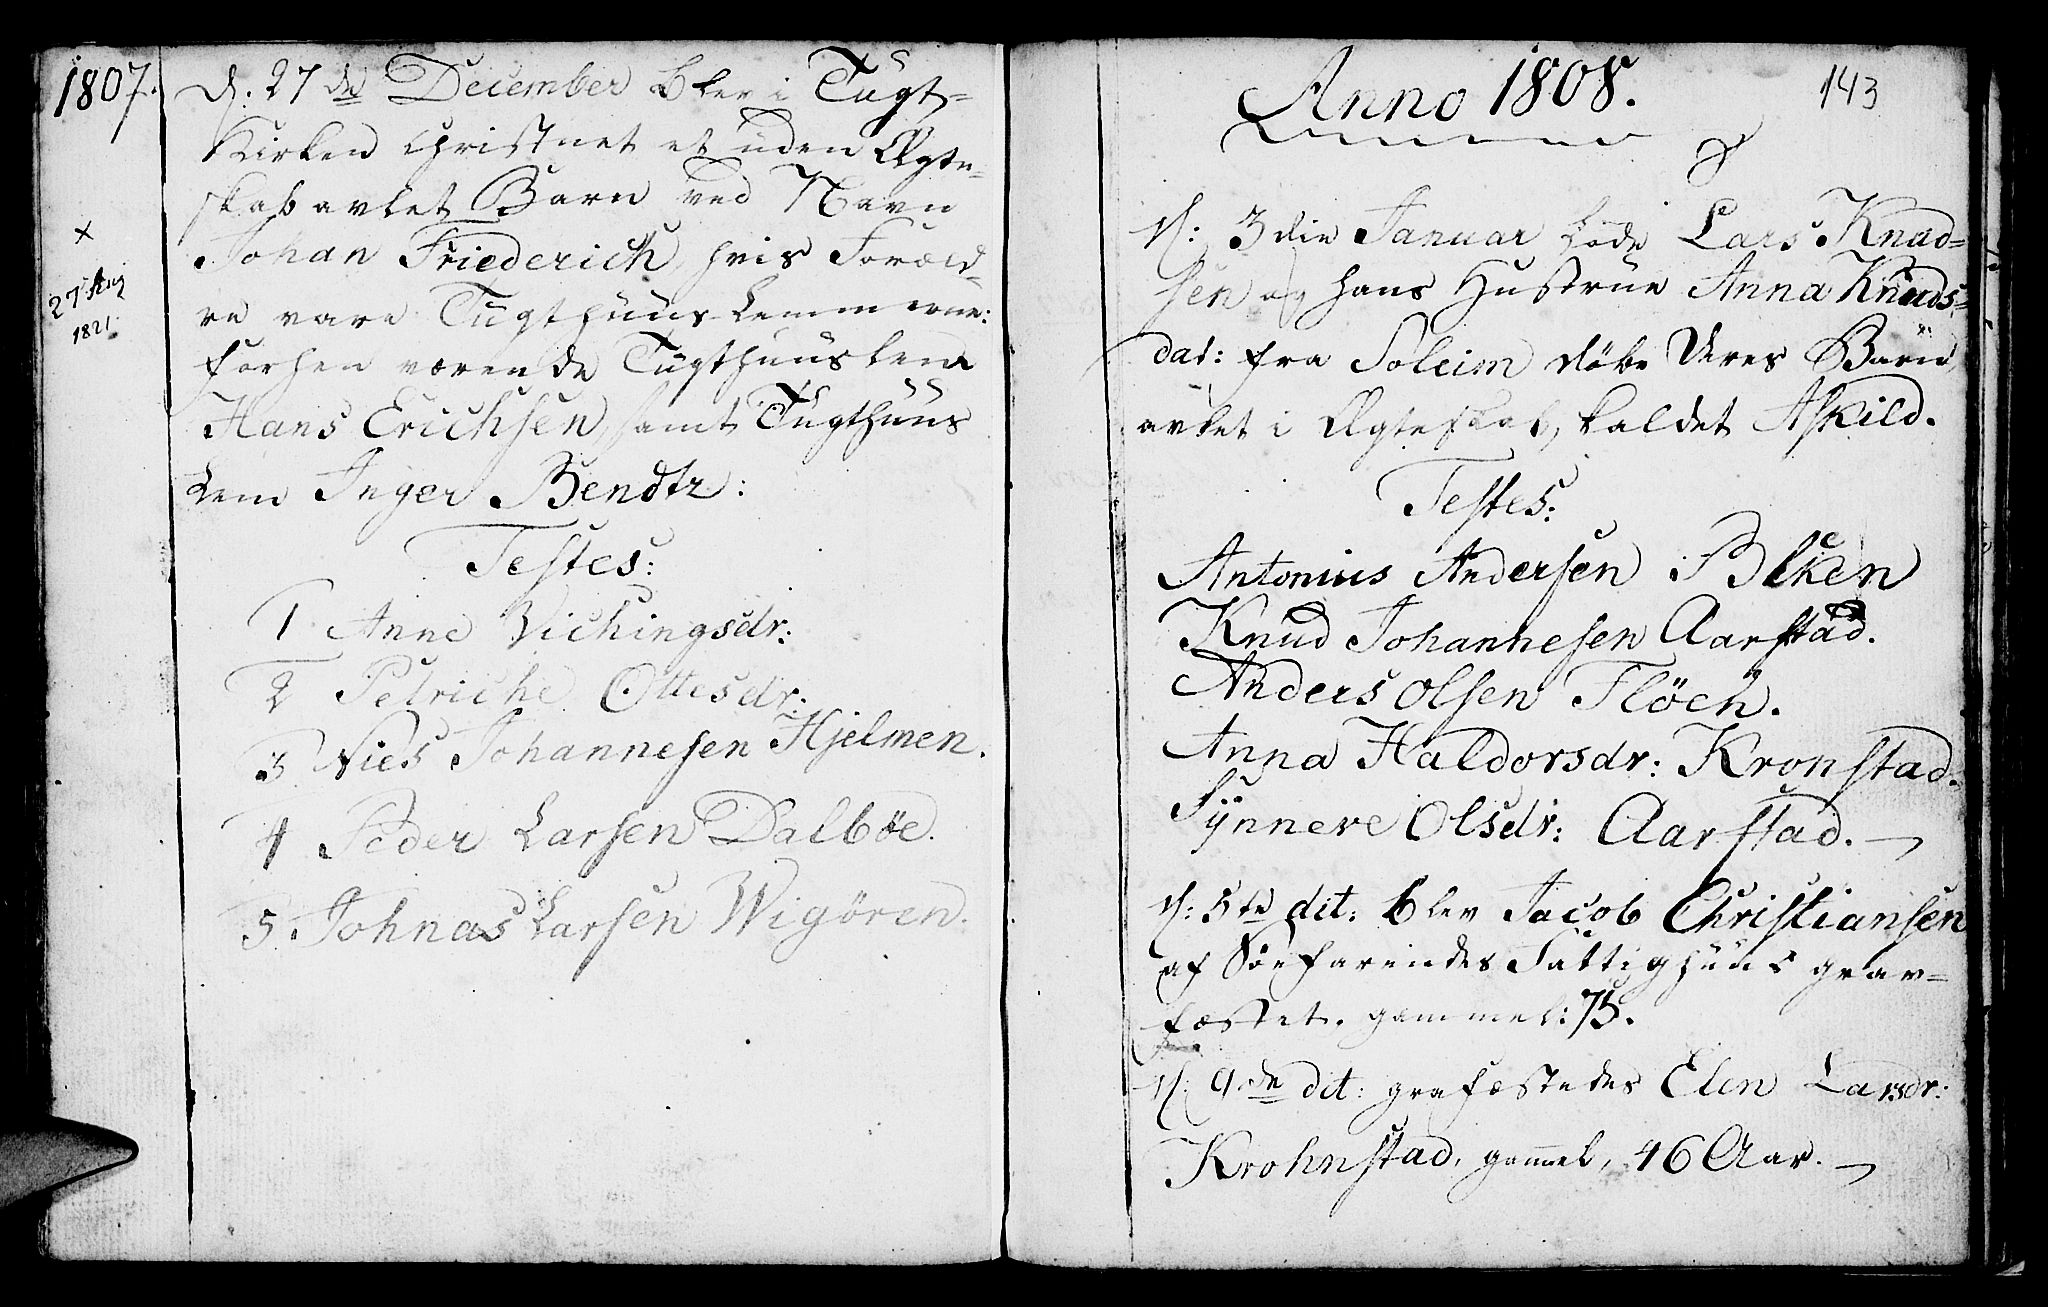 1807.
d: 27de December blev i Tugt-
Kirken christnet et uden Ægte-
skab avlet Barn ved Navn
Johan Friederich, hvis Foræld-
re vare Tugthuus-Lemmerne:
forhen værende Tugthuuslem
Hans Erichsen, samt Tugthuus
Lem Inger Bendtz:
×
27 Aug
1821.
Testes:
1 Anne Vichingsdr:
2 Petriche Ottesdr:
3 Niels Johannesen Hjelmen.
4 Peder Larsen Dalböe.
5. Johnas Larsen Wigören.
Anno 1808.
143
d: 3die Januar lode Lars Knud-
sen og hans Hustrue Anna Knuds-
dat: fra Soleim döbe deres Barn,
avlet i Ægteskab, kaldet Askild.
Testes:
Antonius Andersen
Knud Johannesen Aarstad.
Anders Olsen Flöen.
Anna Haldorsdr: Kronstad.
Synneve Olsdr: Aarstad.
d: 5te dit: blev Jacob Christiansen
af Söefarendes Fattighuus grav-
fæstet. gammel: 75.
d: 9de dit: grafæstedes Elen Larsdr:
Krohnstad, gammel, 46 Aar.